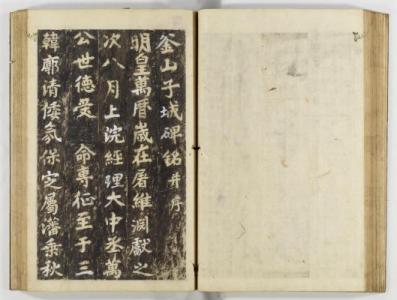 釜山子城碑銘并序
明皇萬曆歲在屠維淵獻之
次八月上浣經理大中丞萬
公世德受 命專征至于三
韓廓清倭氛保定屬藩乘秋